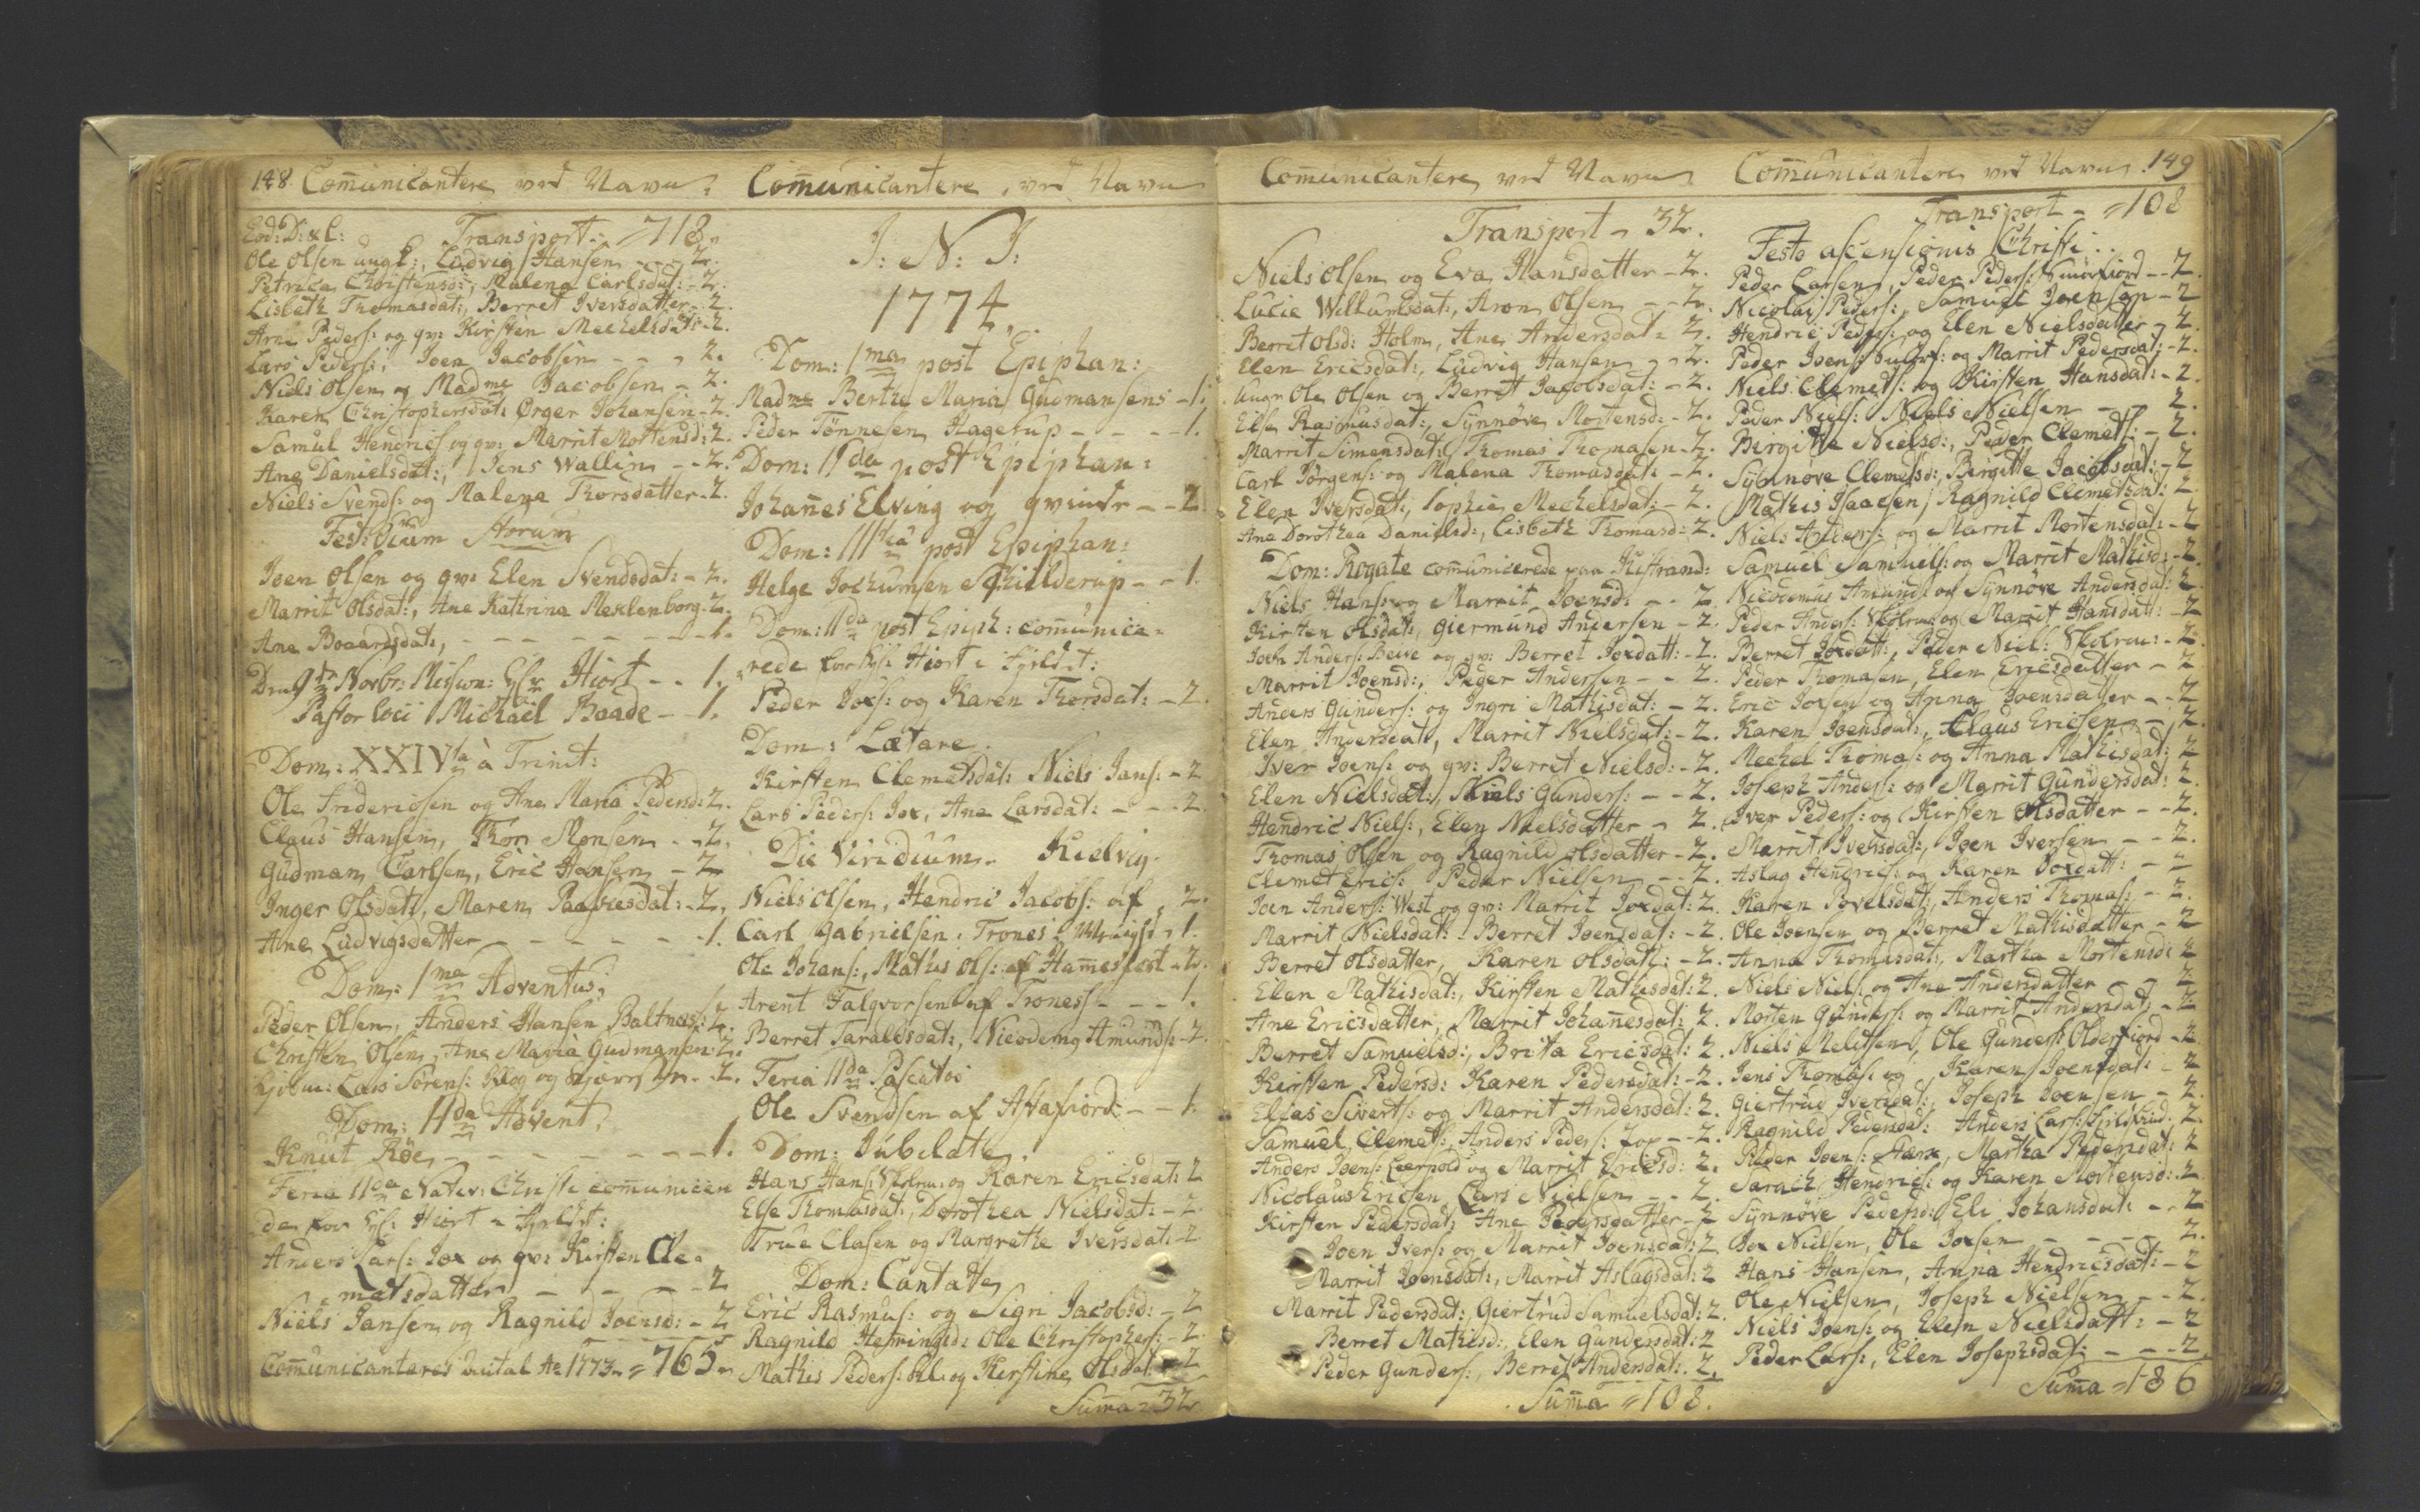 148. Com̅unicantere ved Navn:
Eod: D: & l: Transport. = 718.
Ole Olsen ungk:, Ludvig Hansen - - 2.
Petrica Christensd:, Malena Carlsdat: - 2.
Lisbeth Thomasdat:, Berret Iversdatter - 2.
Arne Peders: og qv: Kirsten Mechelsdat: 2.
Lars Peders:, Joen Jacobsen - - - 2.
Niels Olsen og Madme Jacobsen - 2.
Karen Christophersdat: Ørger Johansen - 2.
Samul Hendrics: og qv: Marrit Mortensd: 2.
Ane Danielsdat:, Jens Wallin - - 2.
Niels Svends: og Malena Thorsdatter - 2.
Fest: Omnium
Joen Olsen og qv: Elen Svendsdat: - 2.
Marrit Olsdat:, Ane Kathrina Meklenborg - 2.
Ane Boaardsdat:, - - - - - - - 1.
Novbr: Mission: Hr Hiort - - 1.
Pastor loci Michaël Baade - - 1.
Dom: XXIVta à Trinit:
Ole Fridericsen og Ane Maria Pedersd: 2.
Claus Hansen, Thor Monsen - - 2.
Gudman Carlsen, Eric Hansen - 2
Inger Olsdat:, Maren - 2.
Ane Ludvigsdatter - - - - - 1.
Dom: 1ma Adventus:
Peder Olsen, Anders Hansen Baltnæs: 2.
Christen Olsen, Ane Maria Gudmansen: 2.
Lars Sørens: Klog og - 2.
Dom: 11da Advent:
Knut Röe, - - - - - - - 1.
Feria 11da Nativ: Christi com̅unicere
de for Hr: Hiort i
Anders Lars: Jox og qv: Kirsten Cle=
metsdatter - - - - 2
Niels Jansen og Ragnild Joensd: - 2
Com̅unicanteres Antal Ao 1773 = 765.
Com̅unicantere, ved Navn
I: N: I:
1774.
Dom: 1ma post Epiphan:
Madme Berthe Maria Gudmansens - 1:
Peder Tönnesen Hagerup - - - - 1.
Dom: 11da post Epiphan:
Johan̅es Elving og qvinde - - 2
Dom: 111tia post Epiphan:
Helge Jochumsen Schielderup - - 1.
Dom: 11da post Epiph: com̅unice=
rede for Hr: Hiort i
Peder Jox: og Karen Thorsdat: - 2.
Dom: Lætare.
Kirsten Clemetsdat: Niels Jans: - 2
Lars Peders: Jox, Ane Larsdat: - - 2
Die Viridium. Kielvig.
Niels Olsen, Hendric Jacobs: af, 2.
Carl Gabrielsen, Trones 1.
Ole Johans:, Mathis Ols: af Ham̅esfest - 2.
Arent Falqvorsen af Troness - - - 1.
Berret Taralesdat:, Nicodemus Amunds: 2.
Feria 11da Paschatos
Ole Svendsen af Altafiord - - 1.
Dom: Jubilate.
Hans Hans: og Karen Ericsdat: 2
Else Thomasdat:, Dorothea Nielsdat: - 2
True Clasen og Margrethe Iversdat: - 2
Dom: Cantate
Eric Rasmus: og Sigri Jacobsd: - 2
Ragnild Hemmingsd: Ole Christophers: - 2
Mathis Peders: og Kirstine Olsdat: 2
Sum̅a = 32
Com̅unicantere ved Navn
Transport = 32.
Niels Olsen og Eva Hansdatter - 2.
Lucie Willumsdat:, Aron Olsen - - 2.
Berret Olsd: Holm, Ane Andersdat: 2.
Elen Ericsdat:, Ludvig Hansen - 2.
Ungr Ole Olsen og Berret Jacobsdat: - 2.
Else Rasmusdat:, Synnöve Mortensd: - 2.
Marrit Simensdat: Thomas Thomasen - 2.
Carl Jörgens: og Malena Thomasdat: - 2.
Elen Iversdat:, Sophie Mechelsdat: - 2.
Ane Dorothea Danielsd:, Lisbeth Thomasd: 2.
Dom: Rogate com̅unicerede paa Kistrand:
Niels Hans: og Marrit Joensd: - - 2.
Kirsten Olsdat:, Giermund Andersen - 2.
Joen Anders: og qv: Berret Joxdatt: - 2.
Marrit Joensd:, Peder Andersen - - 2.
Anders Gunders: og Ingri Mathisdat: - 2.
Elen Andersdat:, Marrit Nielsdat: - 2.
Iver Joens: og qv: Berret Nielsd: - 2.
Elen Nielsdat:, Niels Gunders: - - 2.
Hendric Niels:, Elen Nielsdatter - 2.
Thomas Olsen og Ragnild Olsdatter - 2.
Clemet Erics: Peder Nielsen - - 2.
Joen Anders: West og qv: Marrit Joxdat: 2.
Marrit Nielsdat: - Berret Joensdat: - 2.
Berret Olsdatter, Karen Olsdatt: - 2.
Elen Mathisdat:, Kirsten Mathisdat: 2.
Ane Ericsdatter, Marrit Johan̅esdat: 2.
Berret Samuelsd:, Brita Ericsdat: 2.
Kirsten Pedersd: Karen Pedersdat: - 2.
Elias Siverts: og Marrit Andersdat: 2.
Samuel Clemets:, Anders Peders: Jox - - 2.
Anders Joens: Leerpold og Marrit Ericsd: 2.
Nicolaus Ericsen, Lars Nielsen - - 2.
Kirsten Pedersdat: Ane Pedersdatter - 2
Joen Ivers: og Marrit Joensdat: 2
Marrit Joensdat:, Marrit Aslagsdat: 2
Marrit Pedersdat: Giertrud Samuelsdat: 2.
Berret Mathisd:, Elen Gundersdat: 2
Peder Gunders:, Berret Andersdat: 2.
Sum̅a = 108.
Com̅unicantere ved Navn. 149
Transport - = 108
Festo ascensionis Christi..
Peder Larsen, Peder Peders: Smörfiord - - 2
Nicolai Peders:, Samuel Joensen - 2
Hendric Peders: og Elen Nielsdatter - 2.
Peder Joens: og Marrit Pedersdat: - 2.
Niels Clemets: og Kirsten Hansdat: - 2.
Peder Niels: Niels Nielsen - - 2.
Birgitte Nielsd:, Peder Clemets: - 2.
Synnöve Clemetsd:, Birgitte Jacobsdat: - 2
Mathis Isacsen, Ragnild Clemetsdat: 2
Niels Anders: og Marrit Mortensdat: - 2
Samuel Samuels: og Marrit Mathisd: - 2.
Nicodemus Amunds: og Synnöve Andersdat: 2.
Peder Anders: og Marrit Hansdat: - 2
Berret Joxdatt:, Peder Niels: - 2.
Peder Thomasen, Elen Ericsdatter - 2
Eric Joxsen og Anna Joensdatter - - 2
Karen Joensdat:, Claus Ericsen - - 2
Mechel Thomas: og Anna Mathisdat: 2
Joseph Anders: og Marrit Gundersdat: 2.
Iver Peders: og Kirsten Olsdatter - - 2.
Marrit Iversdat:, Joen Iversen - - 2.
Aslag Hendrics: og Karen Joxdatt: - 2
Karen Povelsdat:, Anders Thomas: - 2.
Ole Joensen og Berret Mathisdatter - 2
Anna Thomasdat:, Martha Mortensd: 2
Niels Niels: og Ane Andersdatter - 2
Morten Gunders: og Marrit Andersdat: - 2
Niels Nielsen, Ole Gunders: Olderfiord - 2
Jens Thomas: og Karen Joensdat: - 2
Giertrud Iversdat:, Joseph Joensen - 2.
Ragnild Pedersdat: Anders Lars: 2.
Peder Joens:, Martha Pedersdat: 2
Hendrics: og Karen Mortensd: 2
Synnöve Pedersd: Eli Johansdat: - - 2
Jox Nielsen, Ole Joxsen - - - 2.
Hans Hansen, Anna Hendricsdat: - 2
Ole Nielsen, Joseph Nielsen - - 2.
Niels Joens: og Elen Nielsdatt: - 2
Peder Lars:, Elen Josephsdat: - - - 2.
Sum̅a = 186